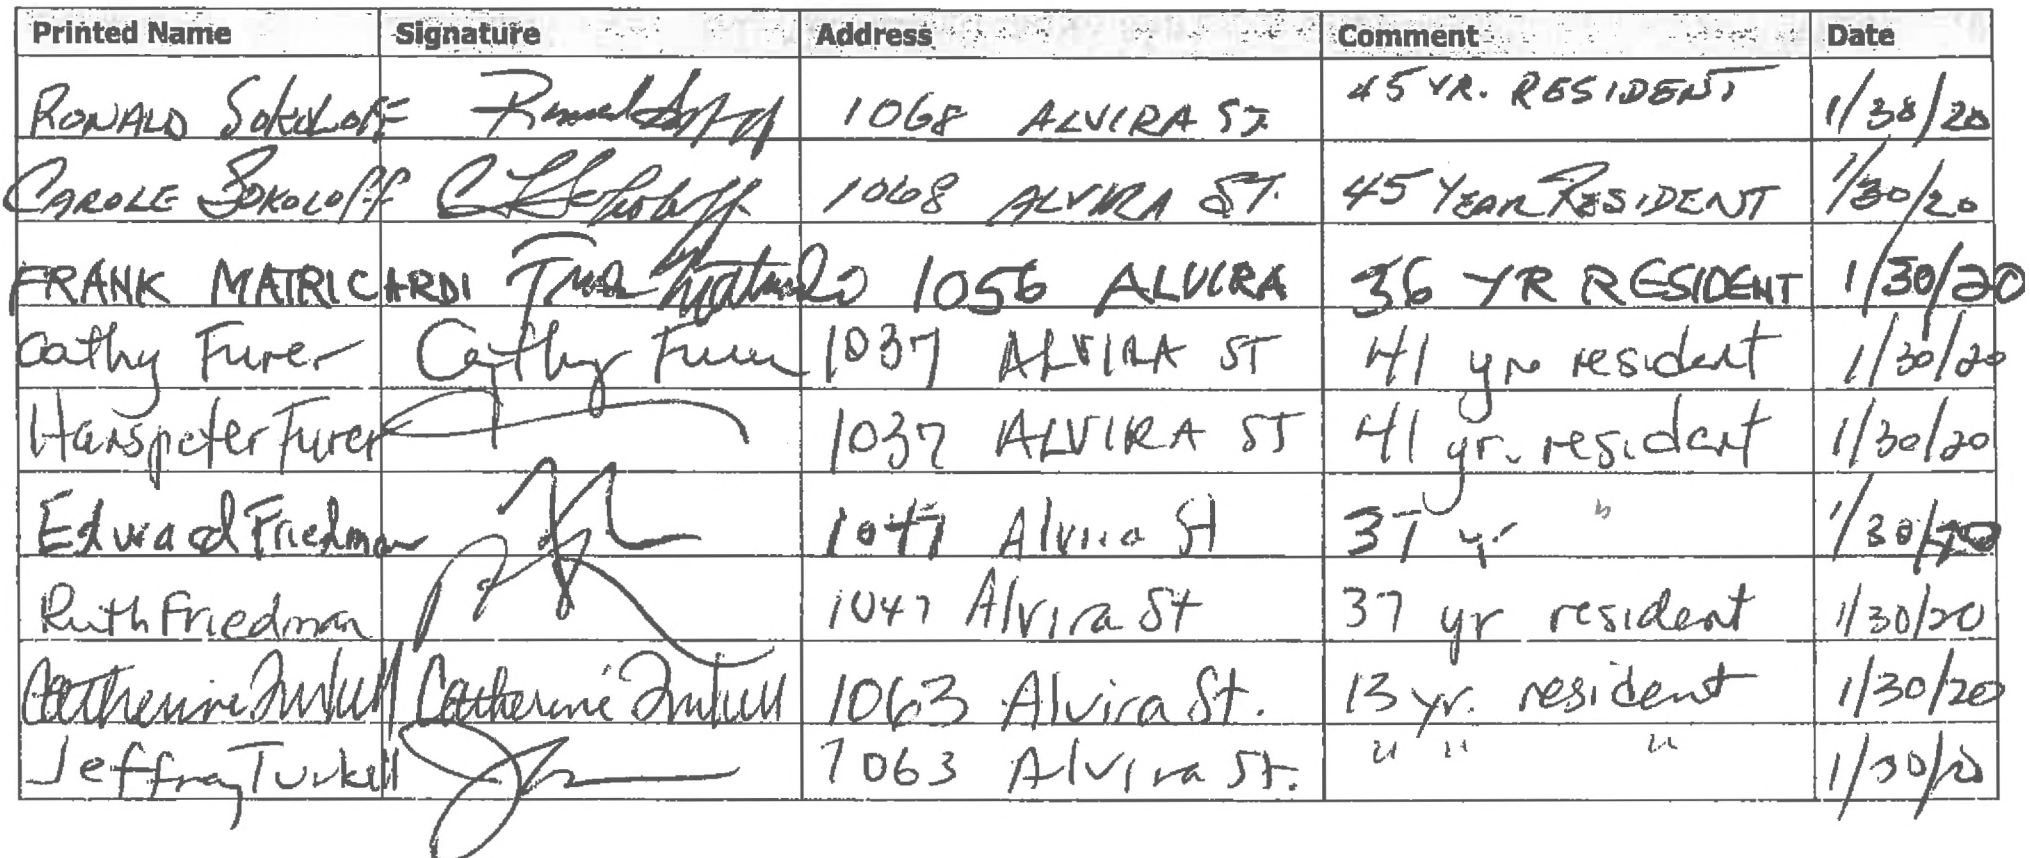 Printed Name Signature Address Comment Date
RONALD SOKOLOFF 1068 ALVIRA ST. 45 YR. RESIDENT 1/30/20
CAROLE SOKOLOFF 1068 ALVIRA ST. 45 YEAR RESIDENT 1/30/20
FRANK MATRICARDI 1056 ALVIRA 36 YR RESIDENT 1/30/20
Cathy Furer Cathy Furer 1037 ALVIRA ST 41 yr resident 1/30/20
Hanspeter Furer 1037 ALVIRA ST 41 yr. resident 1/30/20
Edward Friedman 1047 Alvira St 37 yr " 1/30/20
Ruth Friedman 1047 Alvira St 37 yr resident 1/30/20
Catherine Turkell Catherine Turkell 1063 Alvira St. 13 yr. resident 1/30/20
Jeffrey Turkell 1063 Alvira St. " " " 1/30/20